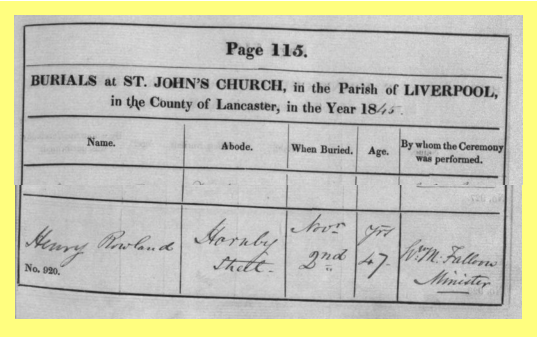 Page 115.
BURIALS at ST. JOHN'S CHURCH, in the Parish of LIVERPOOL,
in the County of Lancaster, in the Year 1845.
Name. Abode. When Buried. Age. By whom the Ceremony
was performed.
Henry Rowland Hornby Novr Yrs Wm M. Falloon
No. 920. Street 2nd 47 Minister